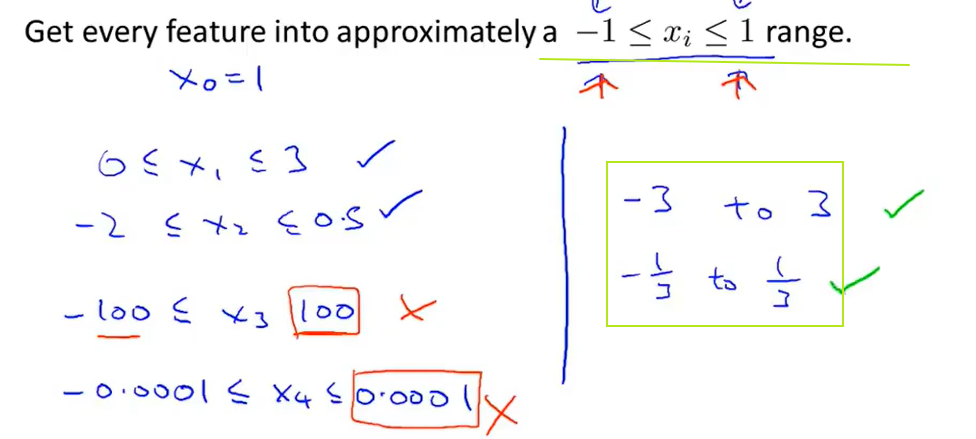 Get every feature into approximately a −1 ≤ xᵢ ≤ 1 range.
x₀ = 1
0 ≤ x₁ ≤ 3 ✓
−2 ≤ x₂ ≤ 0.5 ✓
−100 ≤ x₃ 100 ×
−0.0001 ≤ x₄ ≤ 0.0001 ×
−3 to 3 ✓
−1/3 to 1/3 ✓